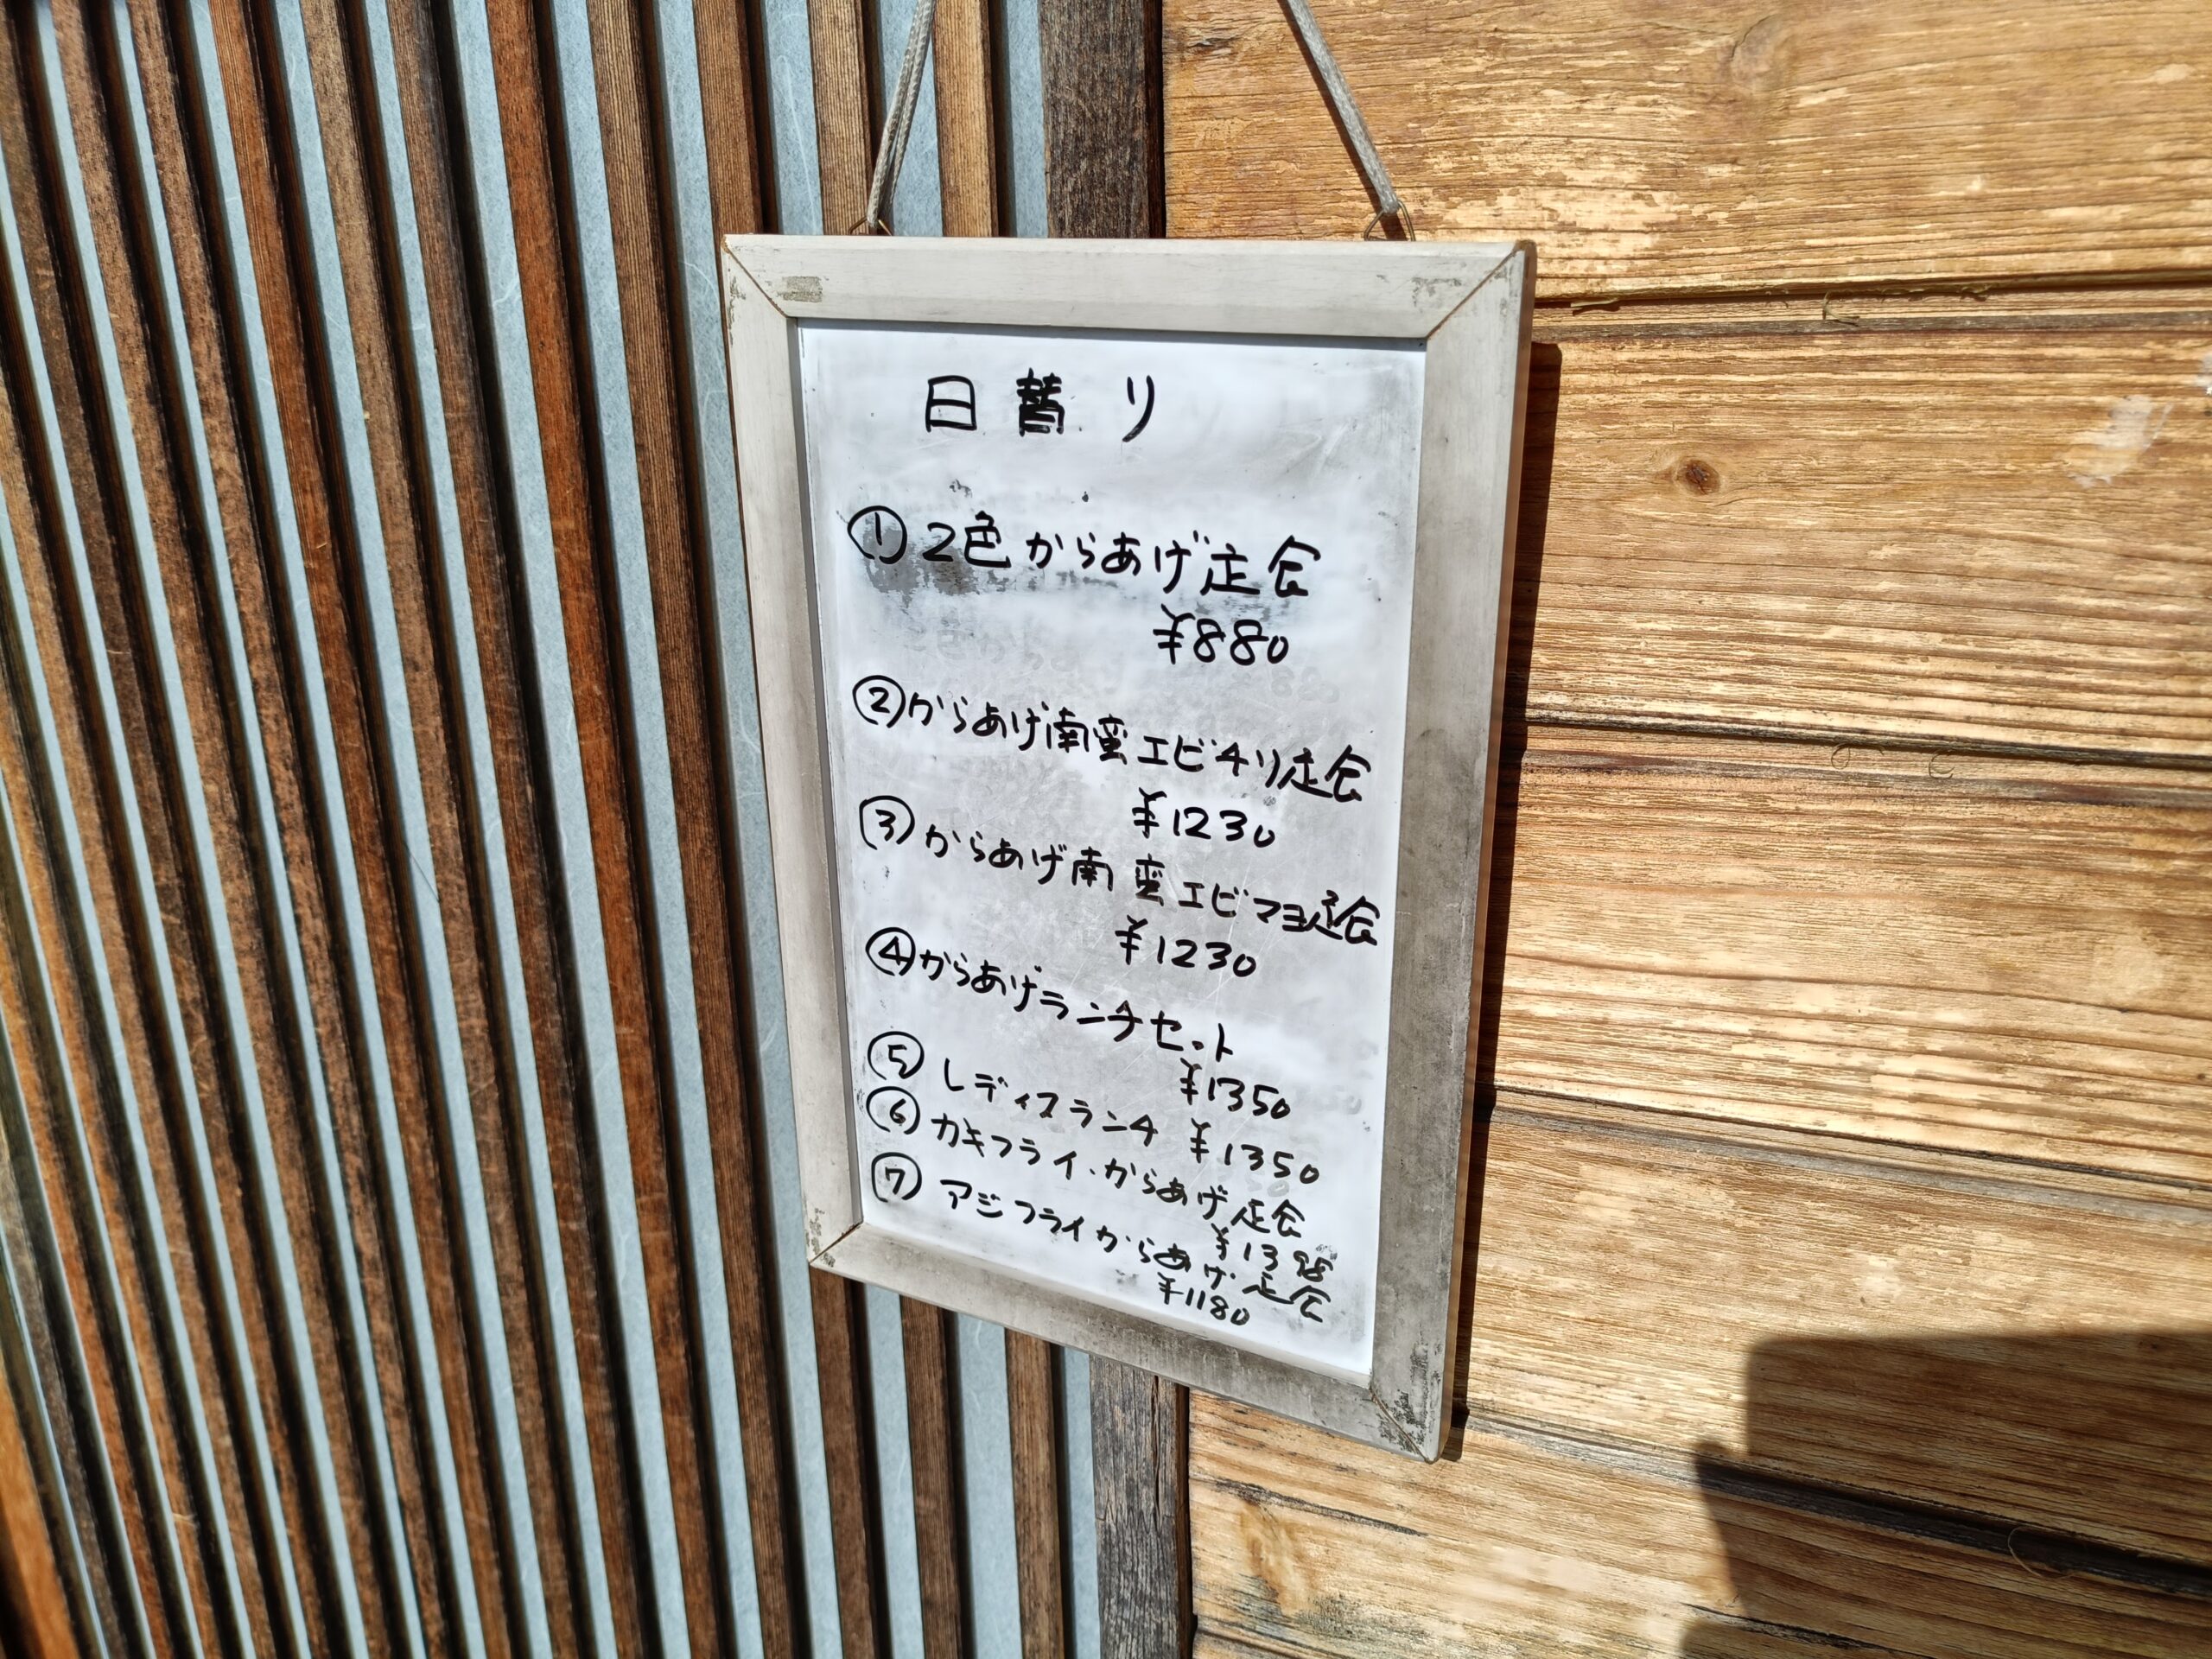 日替り
①2色からあげ定食
¥880
②からあげ南蛮エビチリ定食
¥1230
③からあげ南蛮エビマヨ定食
¥1230
④からあげランチセット
¥1350
⑤レディスランチ ¥1350
⑥カキフライ・からあげ定食
¥1398
⑦アジフライからあげ定食
¥1180